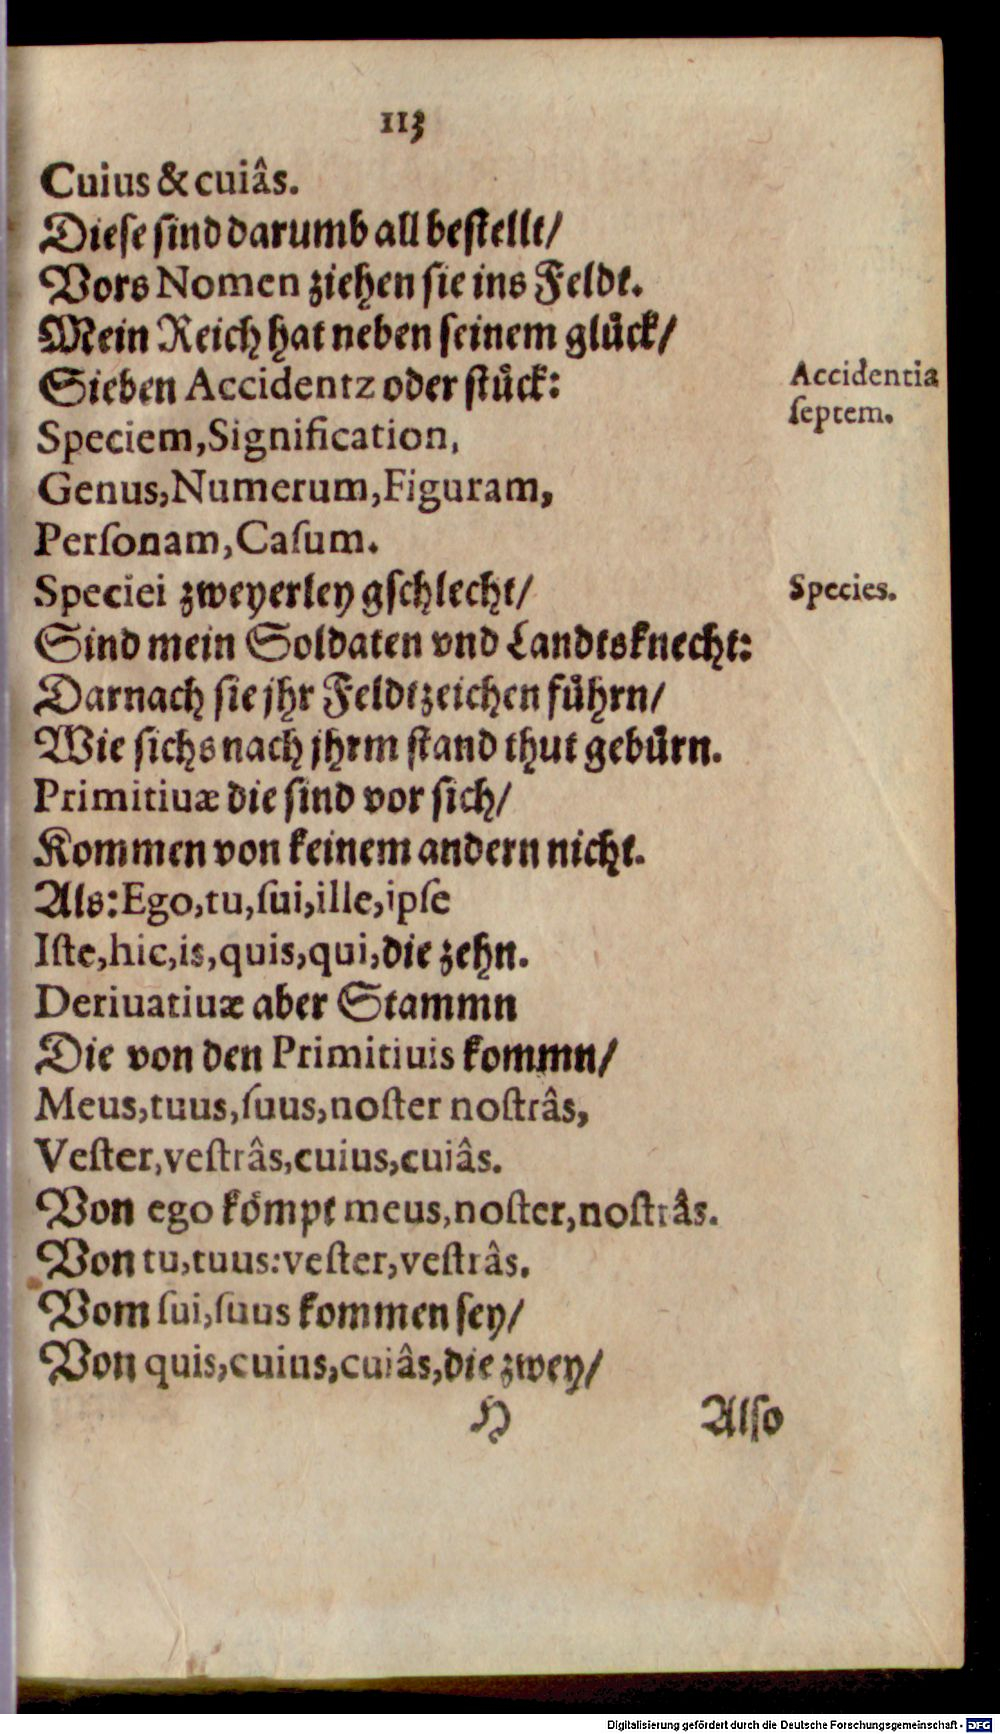 113
Cuius & cuiâs.
Diese sind darumb all bestellt/
Vors Nomen ziehen sie ins Feldt.
Mein Reich hat neben seinem glůck/
Sieben Accidentz oder stůck:
Accidentia
ſeptem.
Speciem, Signification,
Genus, Numerum, Figuram,
Perſonam, Caſum.
Speciei zweyerley gschlecht/
Species.
Sind mein Soldaten vnd Landtsknecht:
Darnach sie jhr Feldtzeichen fůhrn/
Wie sichs nach jhrm stand thut gebůrn.
Primitiuæ die sind vor sich/
Kommen von keinem andern nicht.
Als: Ego, tu, ſui, ille, ipſe
Iſte, hic, is, quis, qui, die zehn.
Deriuatiuæ aber Stammn
Die von den Primitiuis kommn/
Meus, tuus, ſuus, noſter noſtrâs,
Veſter, veſtrâs, cuius, cuiâs.
Von ego kőmpt meus, noſter, noſtrâs.
Von tu, tuus: veſter, veſtrâs.
Vom ſui, ſuus kommen sey/
Von quis, cuius, cuiâs, die zwey/
H Also
Digitalisierung gefördert durch die Deutsche Forschungsgemeinschaft - DFG